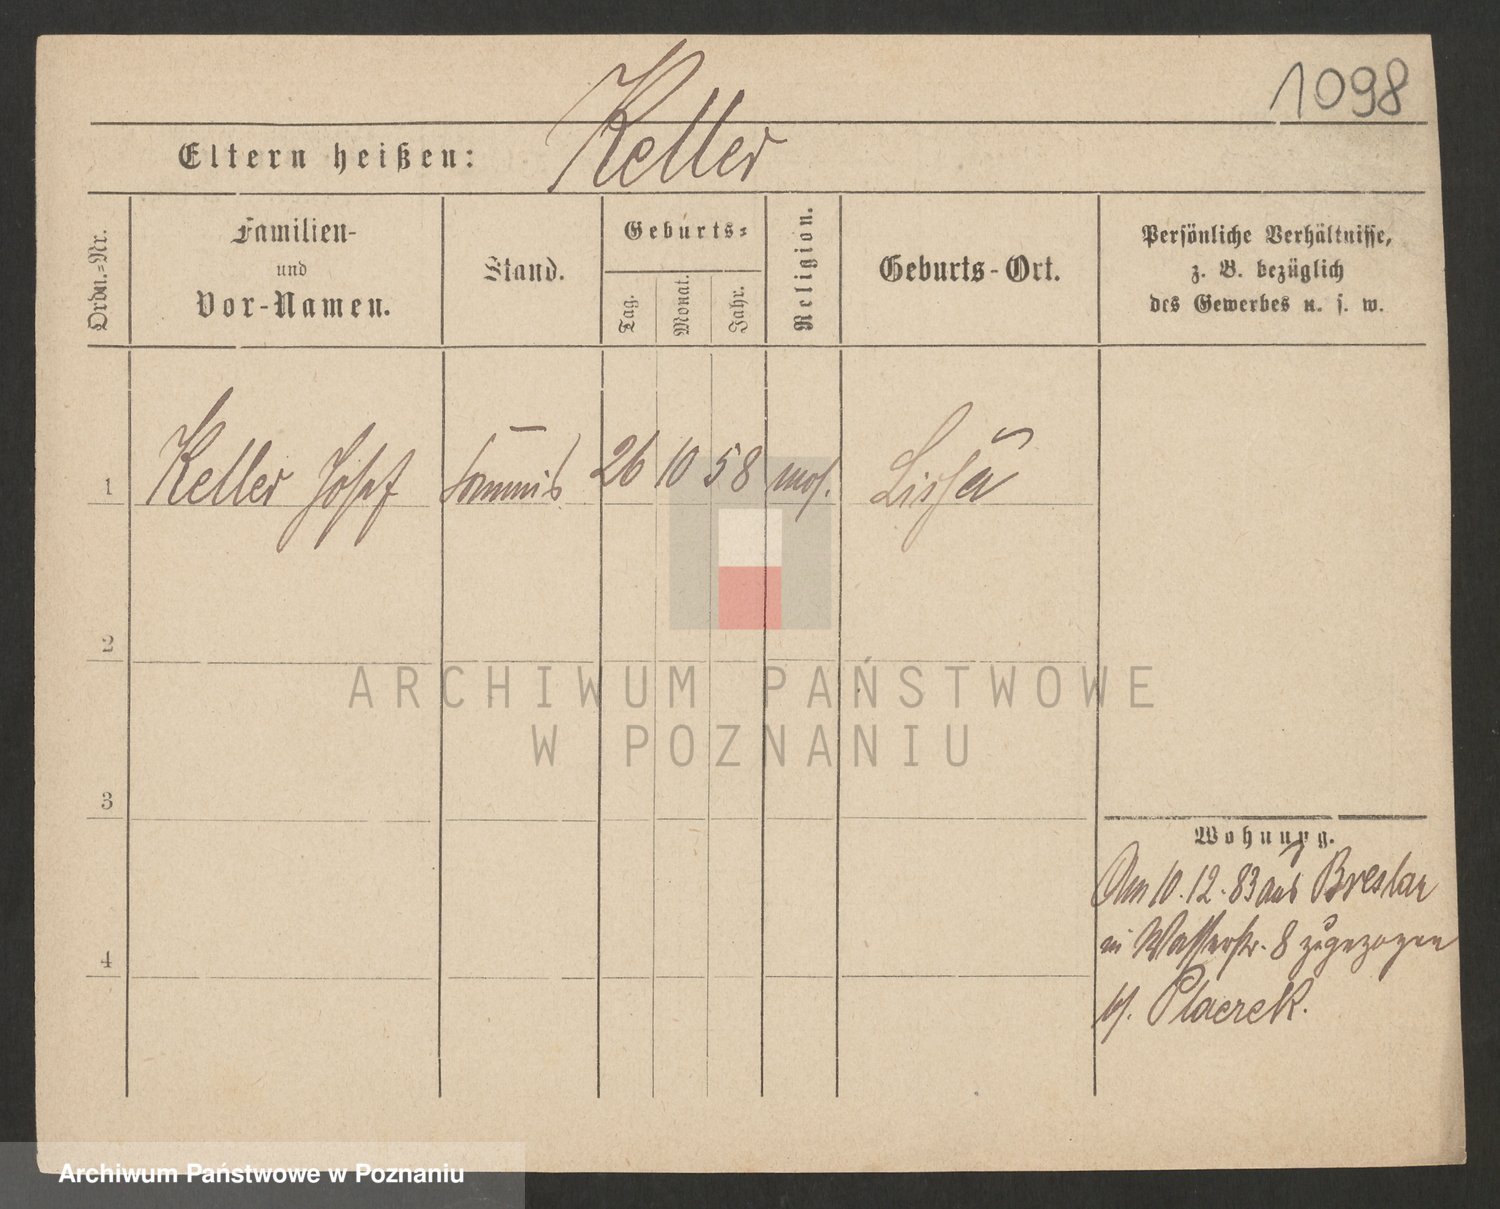 1098
Keller
Eltern heißen:
Ordn.=Nr.
Familien-
und
Vor-Namen.
Stand.
Geburts=
Tag.
Monat.
Jahr.
Religion.
Geburts-Ort.
Persönliche Verhältnisse,
z. B. bezüglich
des Gewerbes u. s. w.
1 Keller Josef Com̄is 26 10 58 mos. Lissa
2
3
4
Wohnung.
Am 10.12.83 aus Breslau
in Wasserstr. 8 zugezogen
b/. Placzek.
ARCHIWUM PAŃSTWOWE
W POZNANIU
Archiwum Państwowe w Poznaniu